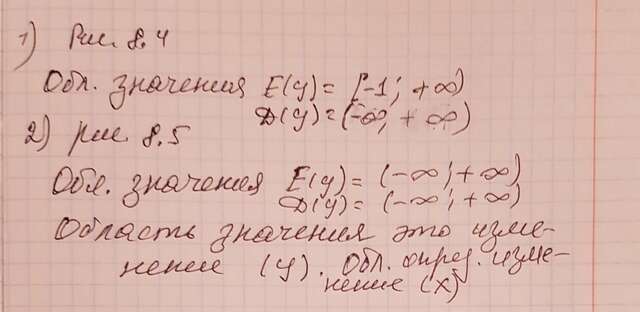 1) Рис. 8.4
Обл. значения E(y) = [-1; +∞)
D(y) = (-∞; +∞)
2) рис 8.5
Обл. значения E(y) = (-∞; +∞)
D(y) = (-∞; +∞)
Область значения это изме-
нение (y). Обл. опред. изме-
нение (x)